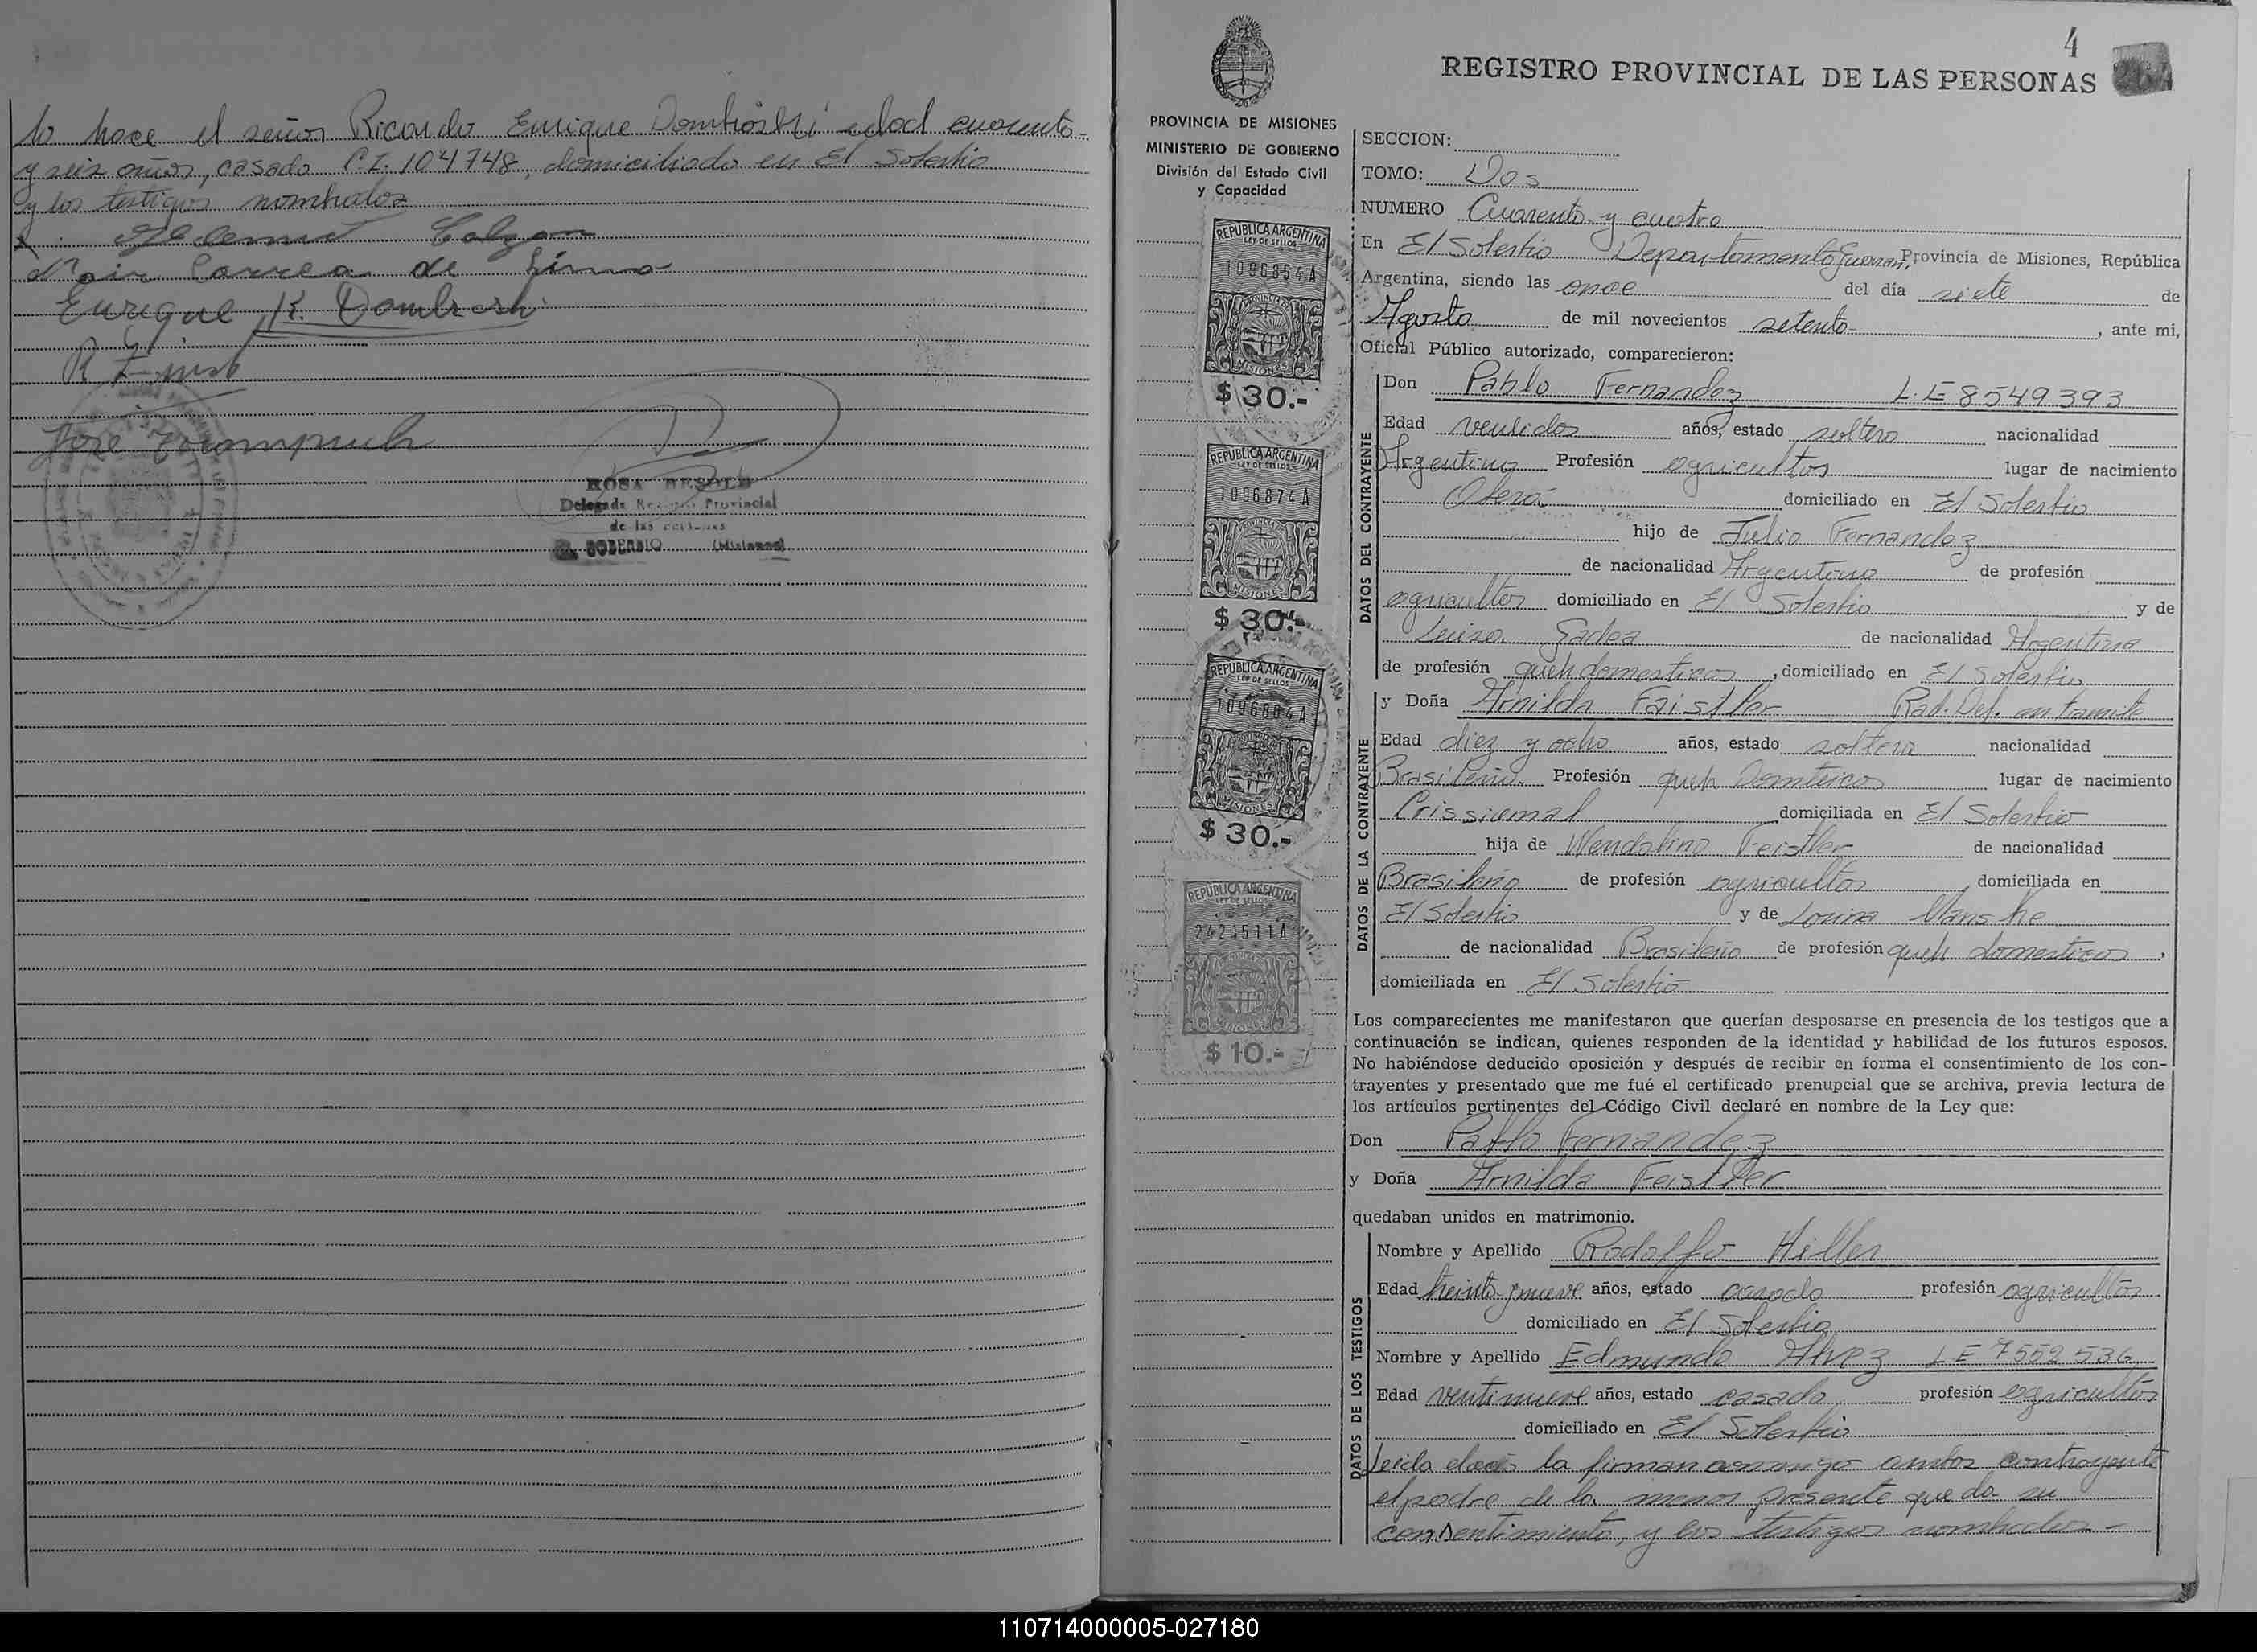 lo hace el señor Ricardo Enrique Dombroski edad cuarenta
y seis años, casado C.I. 104748, domiciliado en El Soberbio
y los testigos nombrados
Correa de Lima
Enrique R. Dombroski
José
ROSA
Delegada Registro Provincial
de las personas
EL SOBERBIO (Misiones)
4
REGISTRO PROVINCIAL DE LAS PERSONAS
PROVINCIA DE MISIONES
MINISTERIO DE GOBIERNO
División del Estado Civil
y Capacidad
REPUBLICA ARGENTINA
LEY DE SELLOS
1096854A
MISIONES
$ 30.-
REPUBLICA ARGENTINA
LEY DE SELLOS
1096874A
MISIONES
$ 30.-
REPUBLICA ARGENTINA
LEY DE SELLOS
1096864A
MISIONES
$ 30.-
REPUBLICA ARGENTINA
LEY DE SELLOS
2421511A
MISIONES
$ 10.-
SECCION:
TOMO: Dos
NUMERO Cuarenta y cuatro
En El Soberbio Departamento Guarani, Provincia de Misiones, República
Argentina, siendo las once del día siete de
Agosto de mil novecientos setenta , ante mi,
Oficial Público autorizado, comparecieron:
DATOS DEL CONTRAYENTE
Don Pablo Fernandez L.E 8549393
Edad ventidos años, estado soltero nacionalidad
Argentino Profesión agricultor lugar de nacimiento
Oberá domiciliado en El Soberbio
hijo de Julio Fernandez
de nacionalidad Argentino de profesión
agricultor domiciliado en El Soberbio y de
Luisa Gadea de nacionalidad Argentina
de profesión queh domesticos , domiciliado en El Soberbio
DATOS DE LA CONTRAYENTE
y Doña Arnilda Faistler Rad. Def. en tramite
Edad diez y ocho años, estado soltera nacionalidad
Brasileña Profesión queh Domticos lugar de nacimiento
Crissiumal domiciliada en El Soberbio
hija de Wendolino Feistler de nacionalidad
Brasileño de profesión agricultor , domiciliada en
El Soberbio y de Lovina Manske
de nacionalidad Brasileña de profesión queh domesticos ,
domiciliada en El Soberbio
Los comparecientes me manifestaron que querían desposarse en presencia de los testigos que a
continuación se indican, quienes responden de la identidad y habilidad de los futuros esposos.
No habiéndose deducido oposición y después de recibir en forma el consentimiento de los con-
trayentes y presentado que me fué el certificado prenupcial que se archiva, previa lectura de
los artículos pertinentes del Código Civil declaré en nombre de la Ley que:
Don Pablo Fernandez
y Doña Arnilda Feistler
quedaban unidos en matrimonio.
DATOS DE LOS TESTIGOS
Nombre y Apellido Rodolfo Hiller
Edad treinta y nueve años, estado casado profesión agricultor
domiciliado en El Soberbio
Nombre y Apellido Edmundo Alvez LE 7552536
Edad ventinueve años, estado casado profesión agricultor
domiciliado en El Soberbio
Leida el acta la firman conmigo ambos contrayente
el padre de la menor presente que da su
consentimiento, y los testigos nombrados -
110714000005-027180